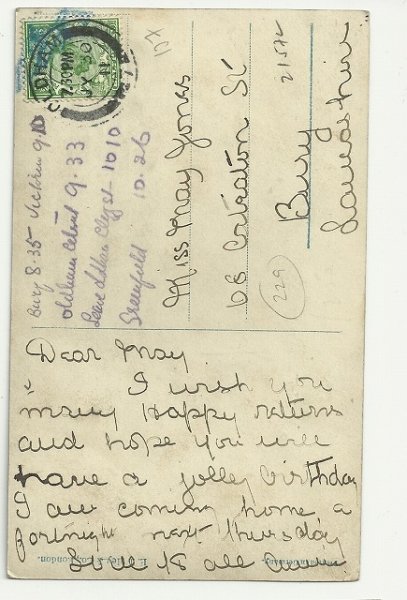 Dear May
I wish you
many Happy returns
and hope you will
have a jolley birthday
I am coming home a
fortnight next thursday
Love to all Annie
Miss May Jones
68 St
Bury
Lancashire
Bury 8.35 Victoria 9.10
Oldham Cent 9.33
Leave Oldham Clegg st 10 10
Greenfield 10.26
229
2.30PM
JY 30
London.